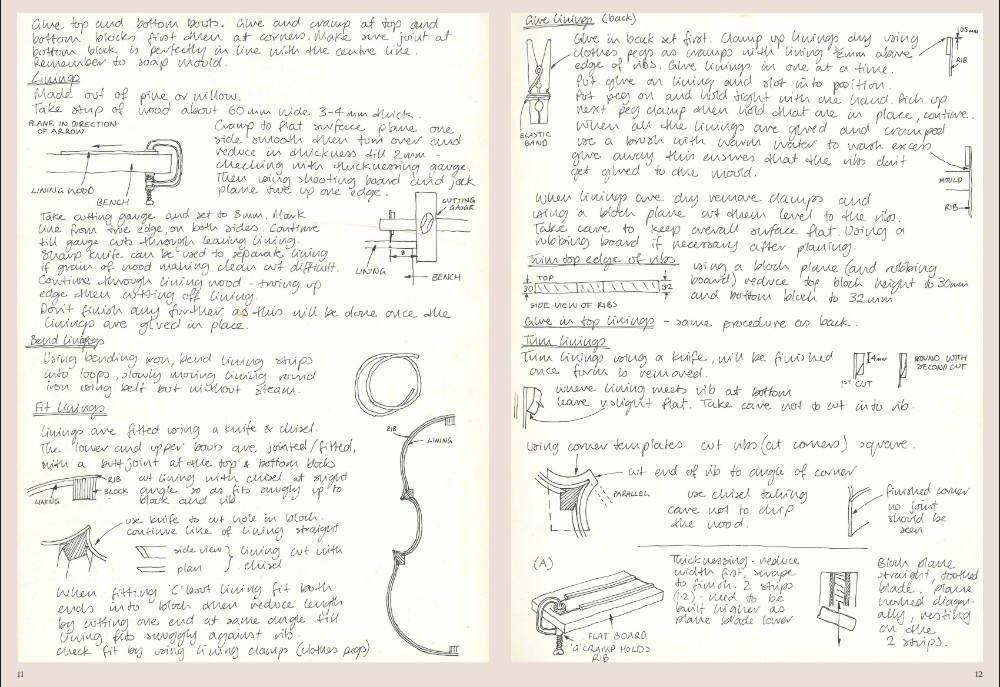 Glue top and bottom bouts. Glue and cramp at top and
bottom blocks first then at corners. Make sure joint at
bottom block is perfectly in line with the centre line.
Remember to soap mould.
Linings
Made out of pine or willow.
Take strip of wood about 60mm wide 3-4mm thick.
PLANE IN DIRECTION
OF ARROW
LINING WOOD
BENCH
Cramp to flat surface plane one
side smooth then turn over and
reduce in thickness till 2mm -
checking with thicknessing gauge.
Then using shooting board and jack
plane true up one edge.
CUTTING
GAUGE
8
LINING
BENCH
Take cutting gauge and set to 8mm. Mark
line from true edge, on both sides. Continue
till gauge cuts through leaving lining.
Sharp knife can be used to separate lining
if grain of wood making clean cut difficult.
Continue through lining wood - truing up
edge then cutting off lining.
Don't finish any further as this will be done once the
linings are glued in place.
Bend Linings
Using bending iron, bend lining strips
into loops, slowly moving lining round
iron using belt but without steam.
Fit Linings
Linings are fitted using a knife & chisel.
The lower and upper bouts are jointed/fitted,
with a butt joint at the top & bottom blocks
RIB
BLOCK
LINING
cut lining with chisel at slight
angle so as fits snugly up to
block and rib.
use knife to cut hole in block.
continue line of lining straight
side view
plan
} lining cut with
chisel
When fitting 'C' bout lining fit both
ends into block then reduce length
by cutting one end at same angle till
lining fits snuggly against rib.
check fit by using lining clamps (clothes pegs)
RIB
LINING
11
Glue linings (back)
Glue in back set first. Clamp up linings dry using
clothes pegs as cramps with lining ½mm above
edge of ribs. Glue linings in one at a time.
Put glue on lining and slot into position.
Put peg on and hold tight with one hand. Pick up
next peg clamp then hold that one in place, continue.
When all the linings are glued and cramped
use a brush with warm water to wash excess
glue away this ensures that the ribs don't
get glued to the mould.
ELASTIC
BAND
0.5mm
RIB
MOULD
RIB
When linings are dry remove clamps and
using a block plane cut them level to the ribs.
Take care to keep overall surface flat. Using a
rubbing board if necessary after planing.
Trim top edge of ribs
TOP
30
32
SIDE VIEW OF RIBS
using a block plane (and rubbing
board) reduce top block height to 30mm
and bottom block to 32mm
Glue in top linings - same procedure as back.
Trim Linings
Trim linings using a knife, will be finished
once form is removed.
4mm
1ST CUT
ROUND WITH
SECOND CUT
where lining meets rib at bottom
leave v. slight flat. Take care not to cut into rib.
Using corner templates cut ribs (at corners) square.
cut end of rib to angle of corner
PARALLEL
use chisel taking
care not to chip
the wood.
finished corner
no joint
should be
seen
(A)
FLAT BOARD
'G' CRAMP HOLDS
RIB
Thicknessing - reduce
width first, scrape
to finish. 2 strips
(1.2) - need to be
built higher as
plane blade lower
Block plane
straight, toothed
blade. plane
worked diagon-
ally, resting
on the
2 strips.
12